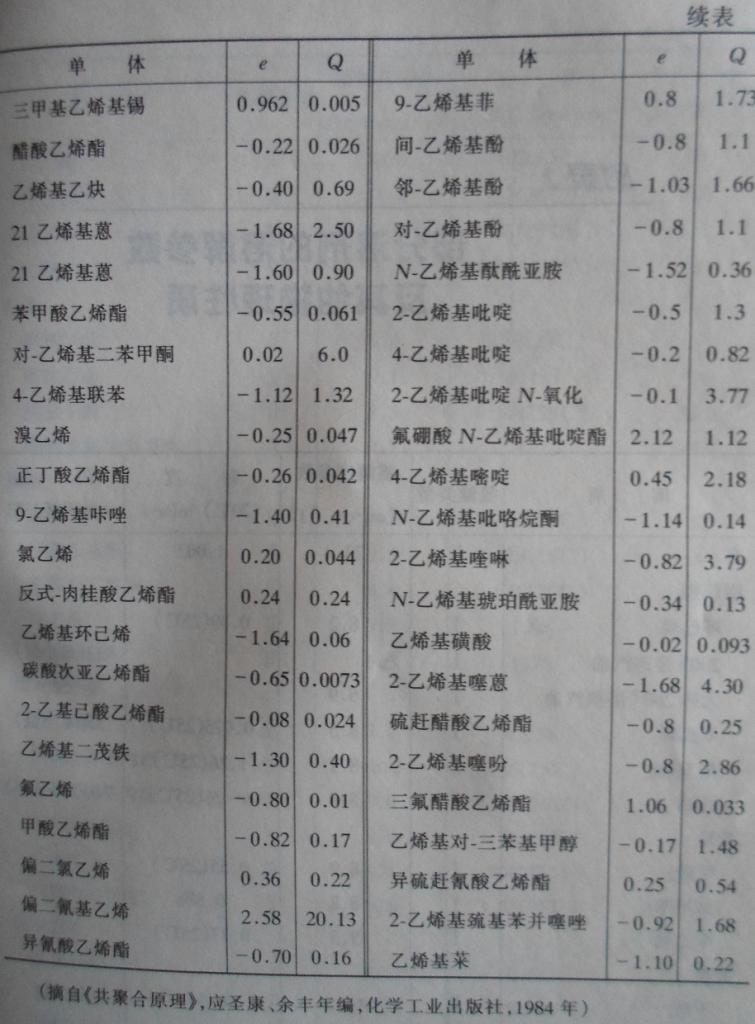 续表
单 体 e Q 单 体 e Q
三甲基乙烯基锡 0.962 0.005 9-乙烯基菲 0.8 1.73
醋酸乙烯酯 -0.22 0.026 间-乙烯基酚 -0.8 1.1
乙烯基乙炔 -0.40 0.69 邻-乙烯基酚 -1.03 1.66
21 乙烯基蒽 -1.68 2.50 对-乙烯基酚 -0.8 1.1
21 乙烯基蒽 -1.60 0.90 N-乙烯基酞酰亚胺 -1.52 0.36
苯甲酸乙烯酯 -0.55 0.061 2-乙烯基吡啶 -0.5 1.3
对-乙烯基二苯甲酮 0.02 6.0 4-乙烯基吡啶 -0.2 0.82
4-乙烯基联苯 -1.12 1.32 2-乙烯基吡啶 N-氧化 -0.1 3.77
溴乙烯 -0.25 0.047 氟硼酸 N-乙烯基吡啶酯 2.12 1.12
正丁酸乙烯酯 -0.26 0.042 4-乙烯基嘧啶 0.45 2.18
9-乙烯基咔唑 -1.40 0.41 N-乙烯基吡咯烷酮 -1.14 0.14
氯乙烯 0.20 0.044 2-乙烯基喹啉 -0.82 3.79
反式-肉桂酸乙烯酯 0.24 0.24 N-乙烯基琥珀酰亚胺 -0.34 0.13
乙烯基环己烯 -1.64 0.06 乙烯基磺酸 -0.02 0.093
碳酸次亚乙烯酯 -0.65 0.0073 2-乙烯基噻蒽 -1.68 4.30
2-乙基己酸乙烯酯 -0.08 0.024 硫赶醋酸乙烯酯 -0.8 0.25
乙烯基二茂铁 -1.30 0.40 2-乙烯基噻吩 -0.8 2.86
氟乙烯 -0.80 0.01 三氟醋酸乙烯酯 1.06 0.033
甲酸乙烯酯 -0.82 0.17 乙烯基对-三苯基甲醇 -0.17 1.48
偏二氯乙烯 0.36 0.22 异硫赶氰酸乙烯酯 0.25 0.54
偏二氰基乙烯 2.58 20.13 2-乙烯基巯基苯并噻唑 -0.92 1.68
异氰酸乙烯酯 -0.70 0.16 乙烯基菜 -1.10 0.22
(摘自《共聚合原理》,应圣康、余丰年编,化学工业出版社,1984 年)